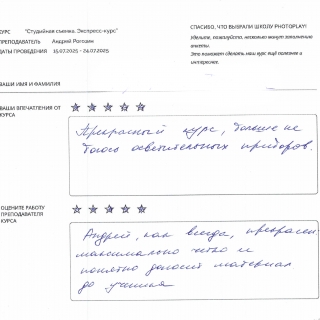 КУРС "Студийная съемка. Экспресс-курс"
ПРЕПОДАВАТЕЛЬ Андрей Рогозин
ДАТЫ ПРОВЕДЕНИЯ 15.07.2025 - 24.07.2025
СПАСИБО, ЧТО ВЫБРАЛИ ШКОЛУ PHOTOPLAY!
Уделите, пожалуйста, несколько минут заполнению
анкеты.
Это поможет сделать наш курс ещё полезнее и
интереснее.
ВАШИ ИМЯ И ФАМИЛИЯ
ВАШИ ВПЕЧАТЛЕНИЯ ОТ
КУРСА
Прекрасный курс, больше не
боюсь осветительных приборов.
ОЦЕНИТЕ РАБОТУ
ПРЕПОДАВАТЕЛЯ
КУРСА
Андрей, как всегда, прекрасен
максимально чётко и
понятно доносит материал
до ученика